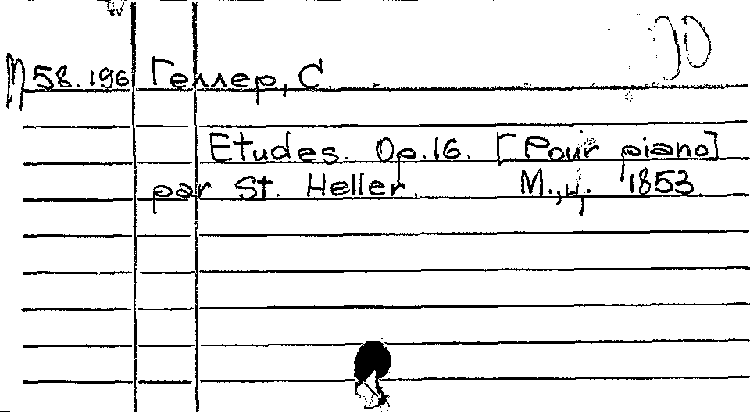 П58.196 Геллер, С
Etudes. Op.16. [Pour piano]
par St. Heller. М.,ц. 1853